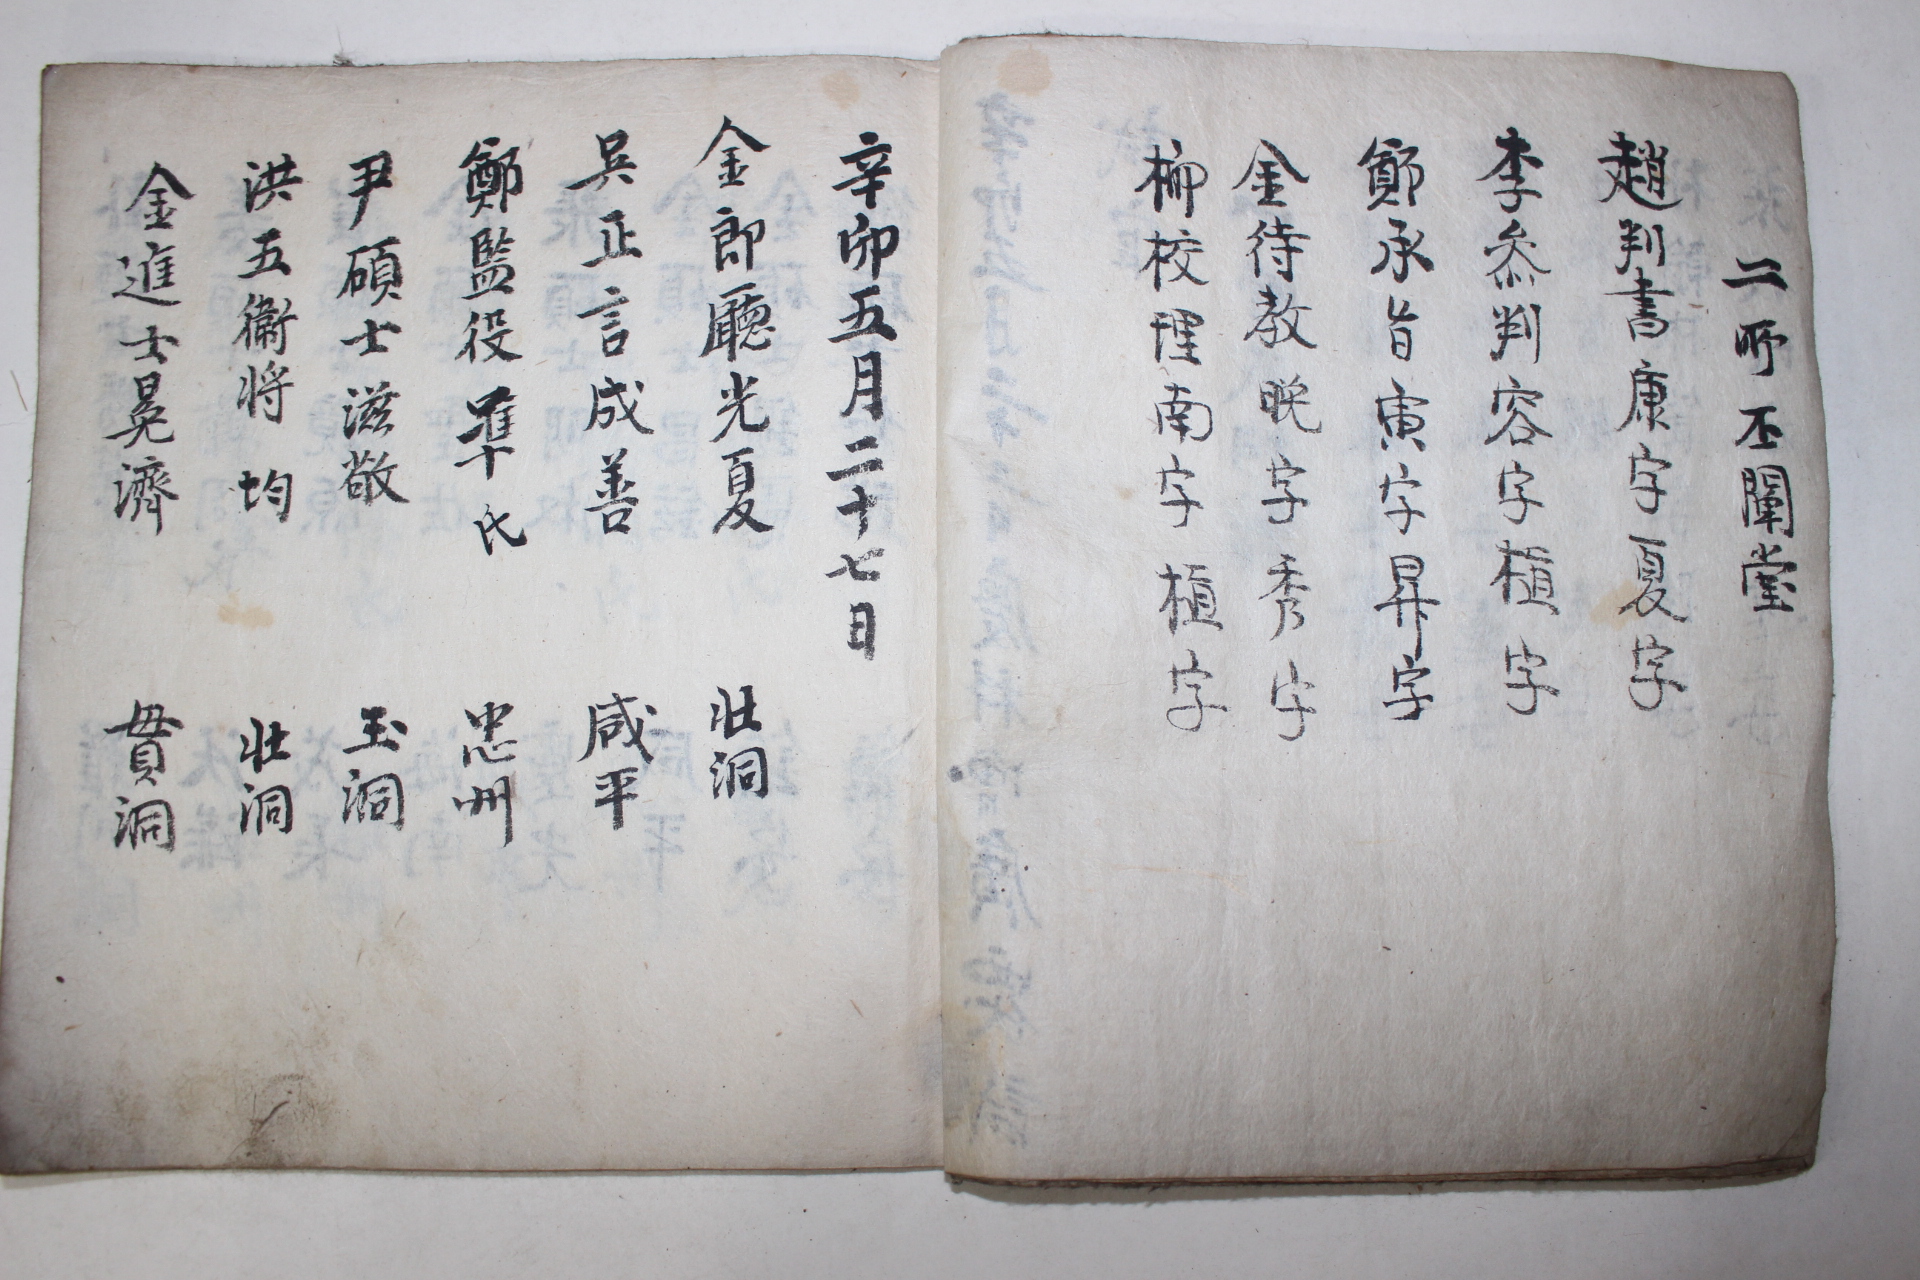 二所 丕闡堂
趙判書康字夏字
李參判容字植字
鄭承旨寅字昇字
金待教晩字秀字
柳校理南字植字
辛卯五月二十七日
金郎廳光夏 壯洞
吳正言成善 咸平
鄭監役準氏 忠州
尹碩士滋敬 玉洞
洪五衛將均 壯洞
金進士晃濟 貫洞